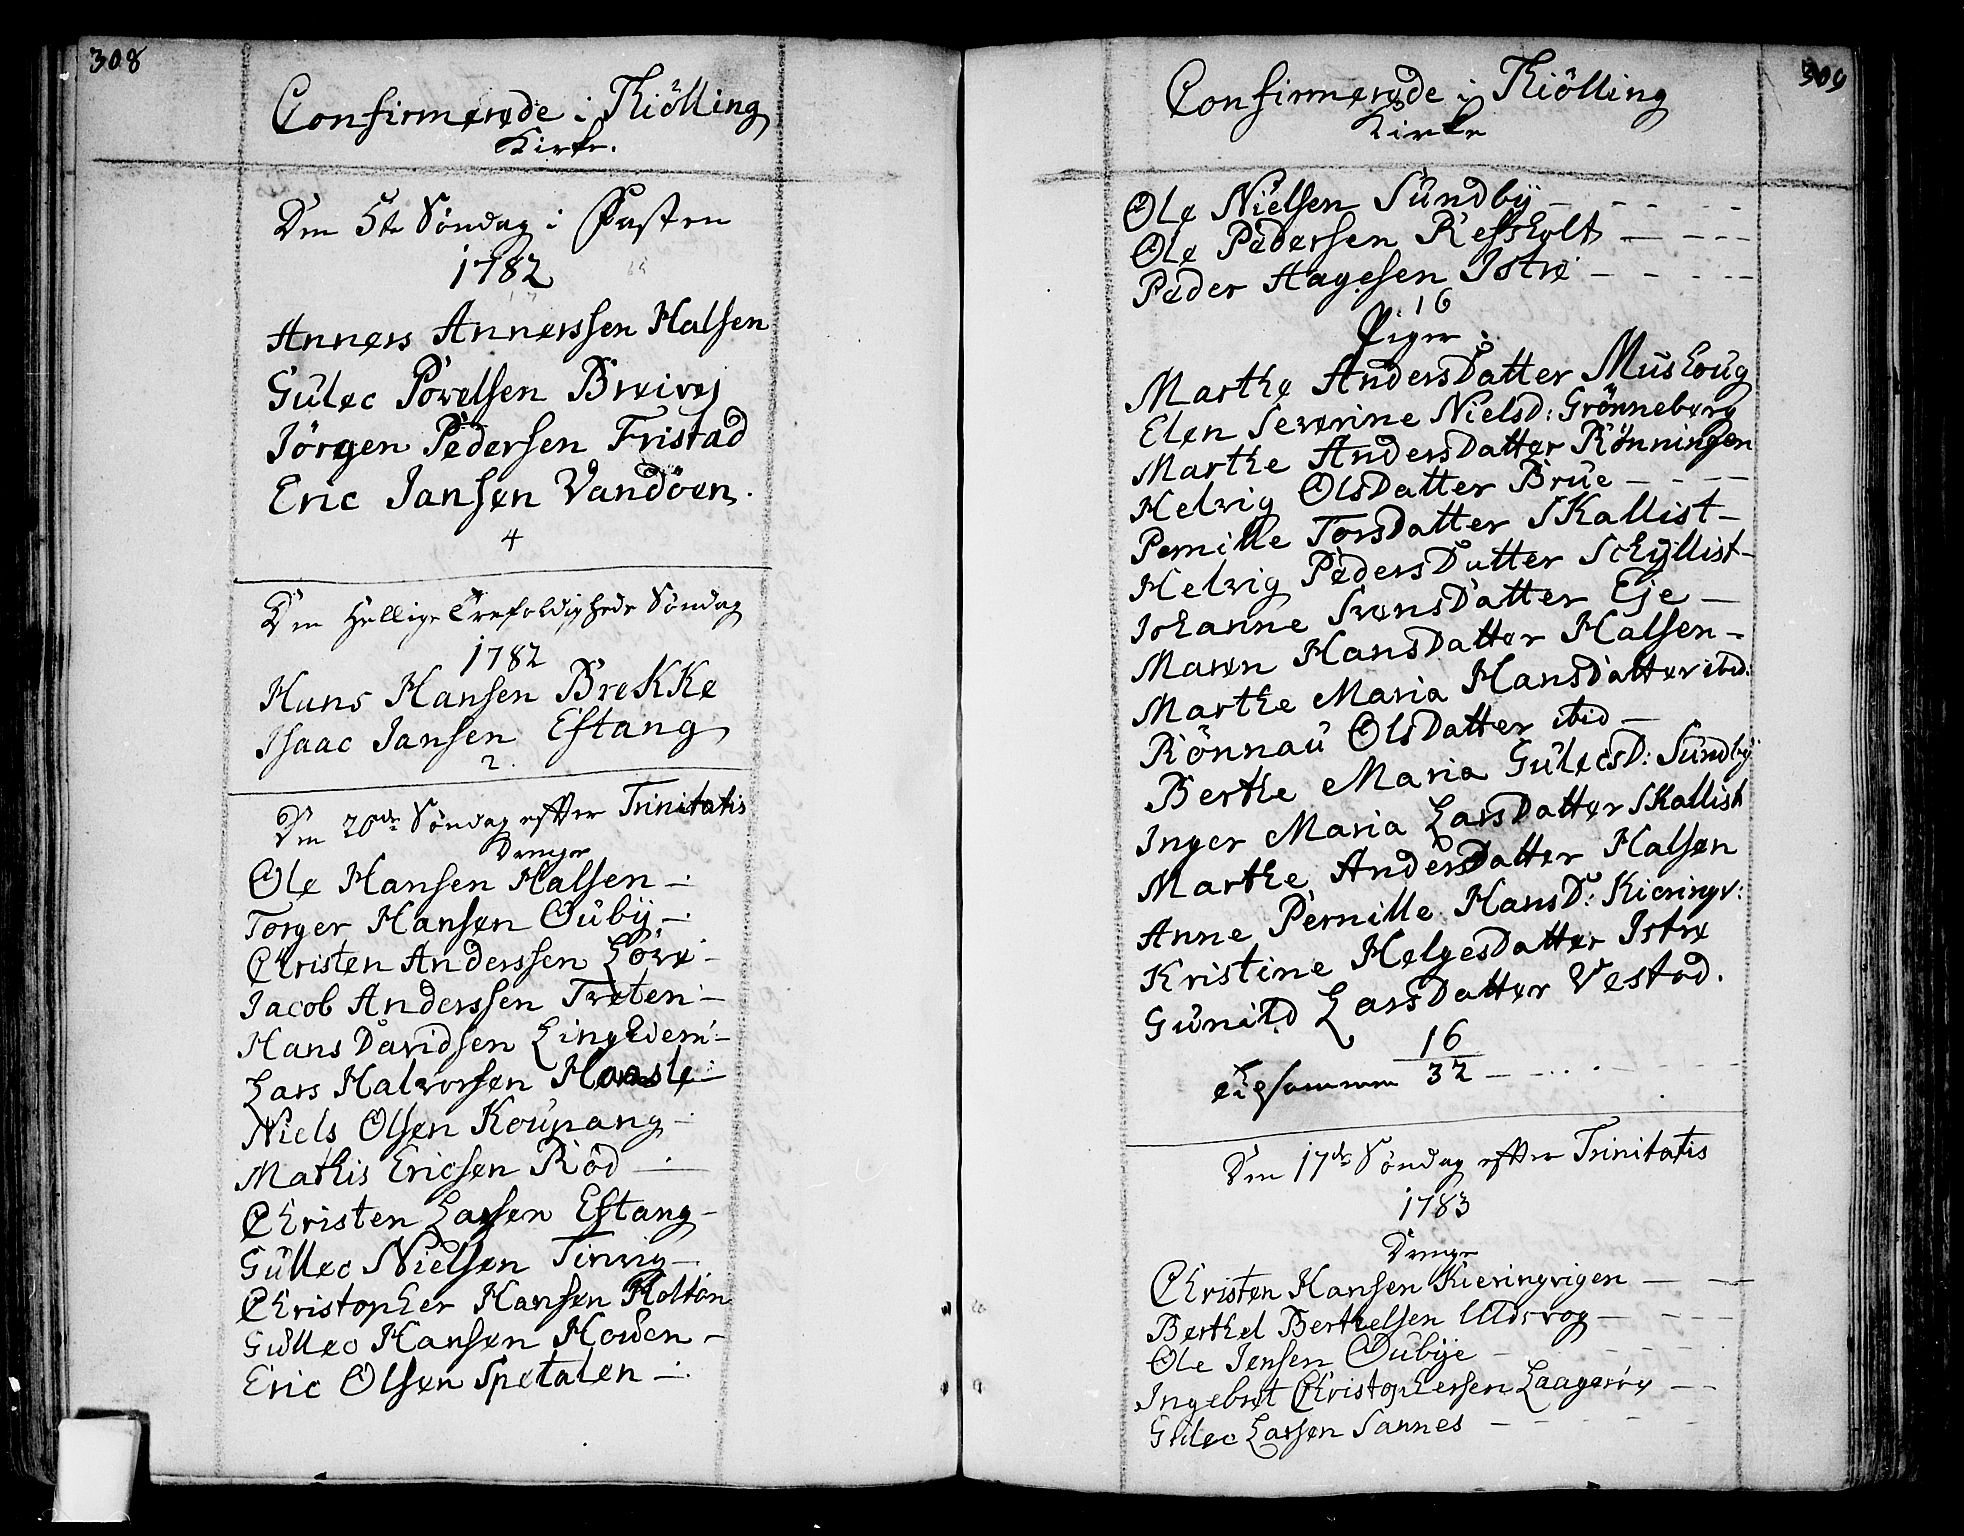 308
Confirmerede i Thiölling
Kirke.
Den 5te Söndag i Fasten
1782
Anners Annerssen Halsen
Gulec Povelsen Breivej
Jörgen Pedersen Fristad
Eric Jansen Vandöen.
4
Den Hellige Trefoldigheds Söndag
1782
Hans Hansen Brekke
Isaac Jansen Eftang
2.
Den 20de Söndag efter Trinitatis
Drenge
Ole Hansen Halsen
Torger Hansen Ouby
Christen Anderssen Löve
Jacob Anderssen Treten
Hans Davidsen Lingelem
Lars Halvorsen
Niels Olsen Koupang
Mathis Ericsen Röd
Christen Larsen Eftang
Gullec Nielsen Tinvig
Christopher Hansen Holtan
Gullec Hansen Houen
Eric Olsen Spetalen
309
Confirmerede i Thiölling
Kirke
Ole Nielsen Sundby
Ole Pedersen Refsholt
Peder Hagesen Istre
16
Piger
Marthe AndersDatter Mushoug
Elen Severine Nielsd: Grönneberg
Marthe AndersDatter Rönningen
Helvig OlsDatter Brue
Pernille TorsDatter Skallist
Helvig PedersDatter Schyllist
Johanne SvensDatter Eje
Maren HansDatter Halsen
Marthe Maria HansDatter ibid:
Rönnau OlsDatter ibid
Berthe Maria GulecsD: Sundby
Inger Maria LarsDatter Skallist
Marthe AndersDatter Halsen
Anne Pernille HansD: Kieringv:
Kristine HelgesDatter Istre
Gunild LarsDatter Vestad.
16
tilsammen 32
Den 17de Söndag efter Trinitatis
1783
Drenge
Christen Hansen Kieringvigen
Berthel Berthelsen Uldsvog
Ole Jensen Oubye
Ingebret Christophersen Laageröe
Gulec Larsen Sannes